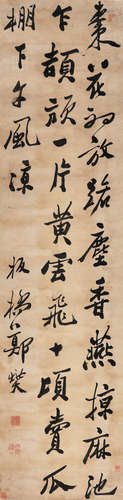 棗花初放路塵香燕掠麻池
乍頡頏一片黃雲飛十頃賣瓜
棚下午風涼 板橋鄭燮